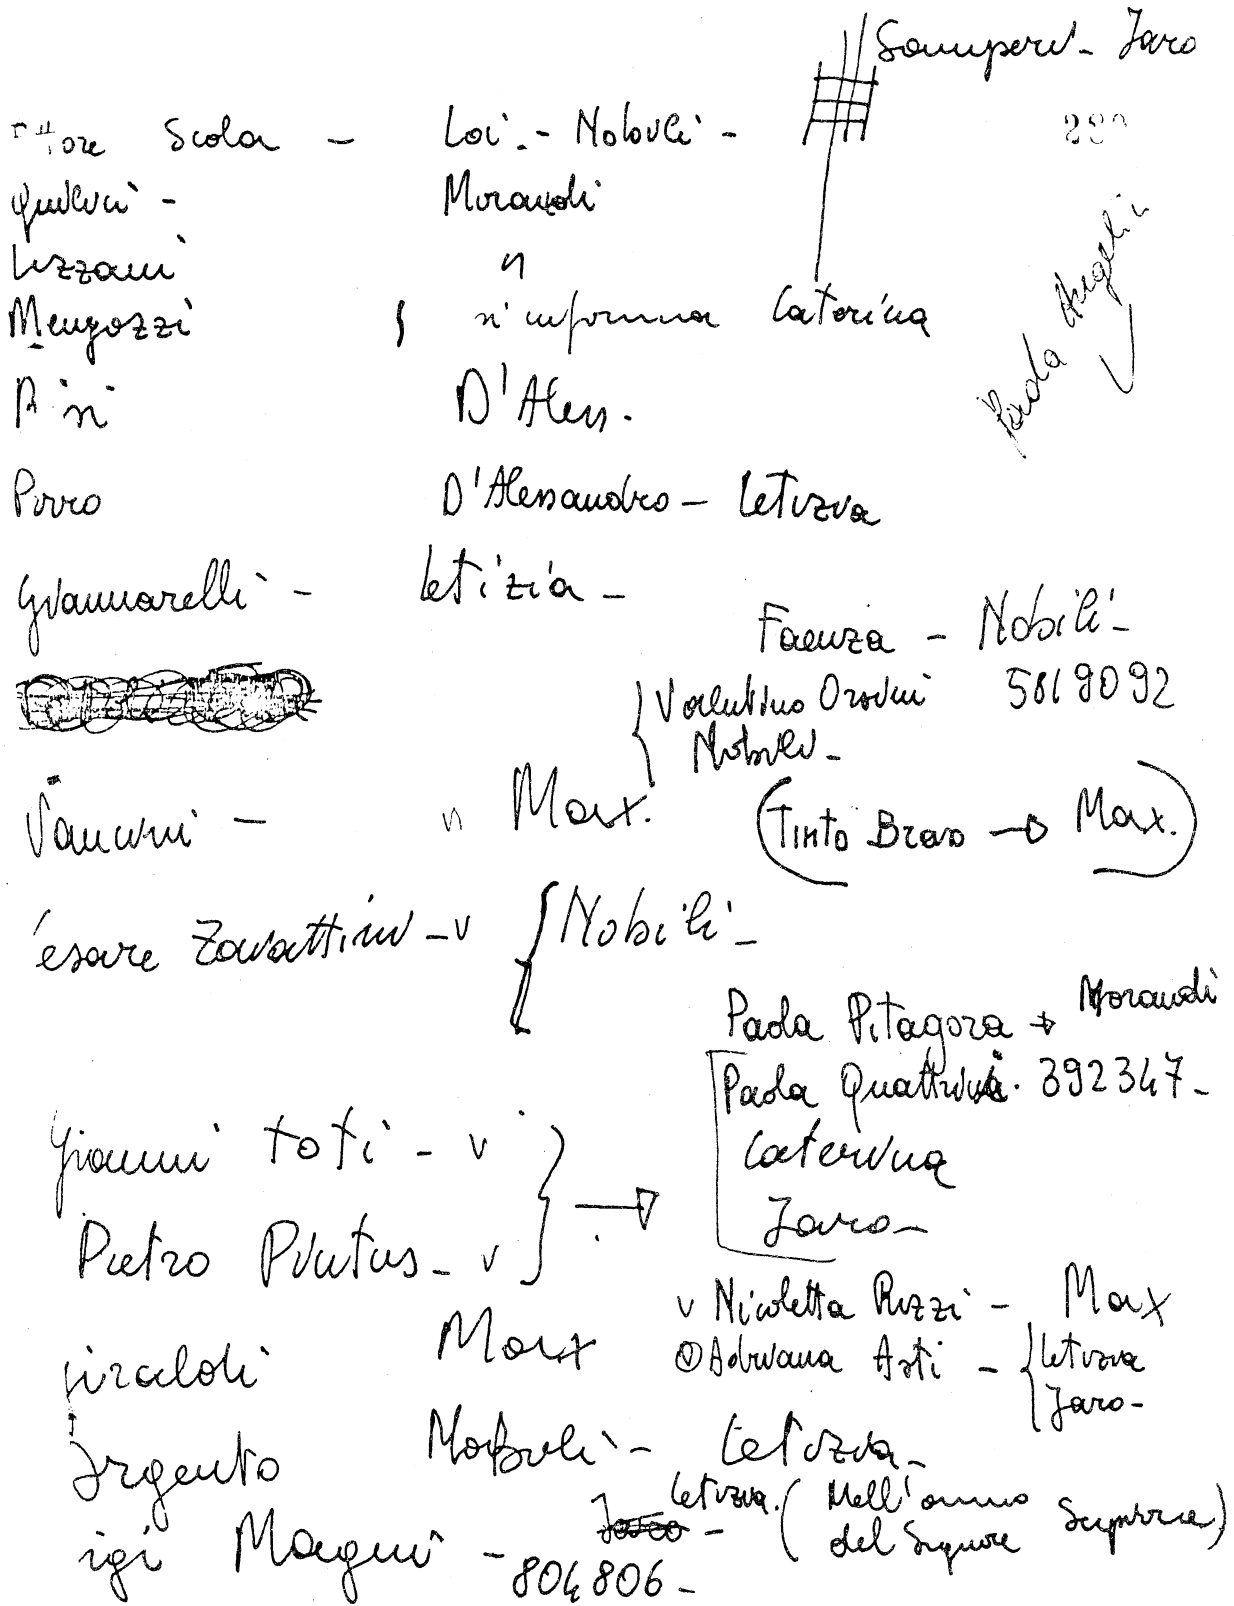 Samperi - Jaro
ttore Scola - Loi - Nobili -
Morandi
Lizzani "
Mengozzi si informa Caterina
Paola Angeli
Risi D'Aless.
Pirro D'Alessandro - Letizia
Giannarelli - Letizia -
Faenza - Nobili -
Valentino Orsini 5819092
Nobili -
Vancini - " Max.
(Tinto Brass → Max.)
esare Zavattini - v { Nobili -
Paola Pitagora → Morandi
Paola Quattrini. 392347 -
Caterina
Jaro -
Gianni Toti - v
Pietro Pintus - v } →
v Nicoletta Rizzi - Max
Giraldi Max
Adriana Asti - { Letizia
Jaro -
Argento Nobili - Letizia -
igi Magni - Letizia. (Nell'anno
del Signore Scipione)
804806 -